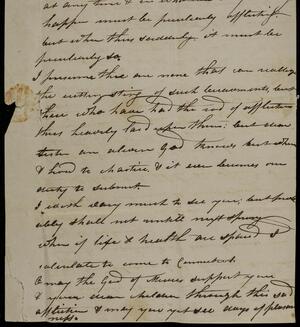 at any time & in whatever
happen must be peculiarly afflictive
but when thus suddenly it must be
peculiarly so,
I presume there are none that can realize
the cutting sting of such bereavements but
those who have had the rod of affliction
thus heavily laid upon them; but our
God knows but when
& how to chastise, & it ever becomes our
duty to submit.
I wish very much to see you, but prob
ably shall not until next spring
when if life & health are spared I
calculate to come to Connecticut.
O may the God of Mercies support you
& your dear children through this sad
affliction & may you yet see days of pleasant
ness.